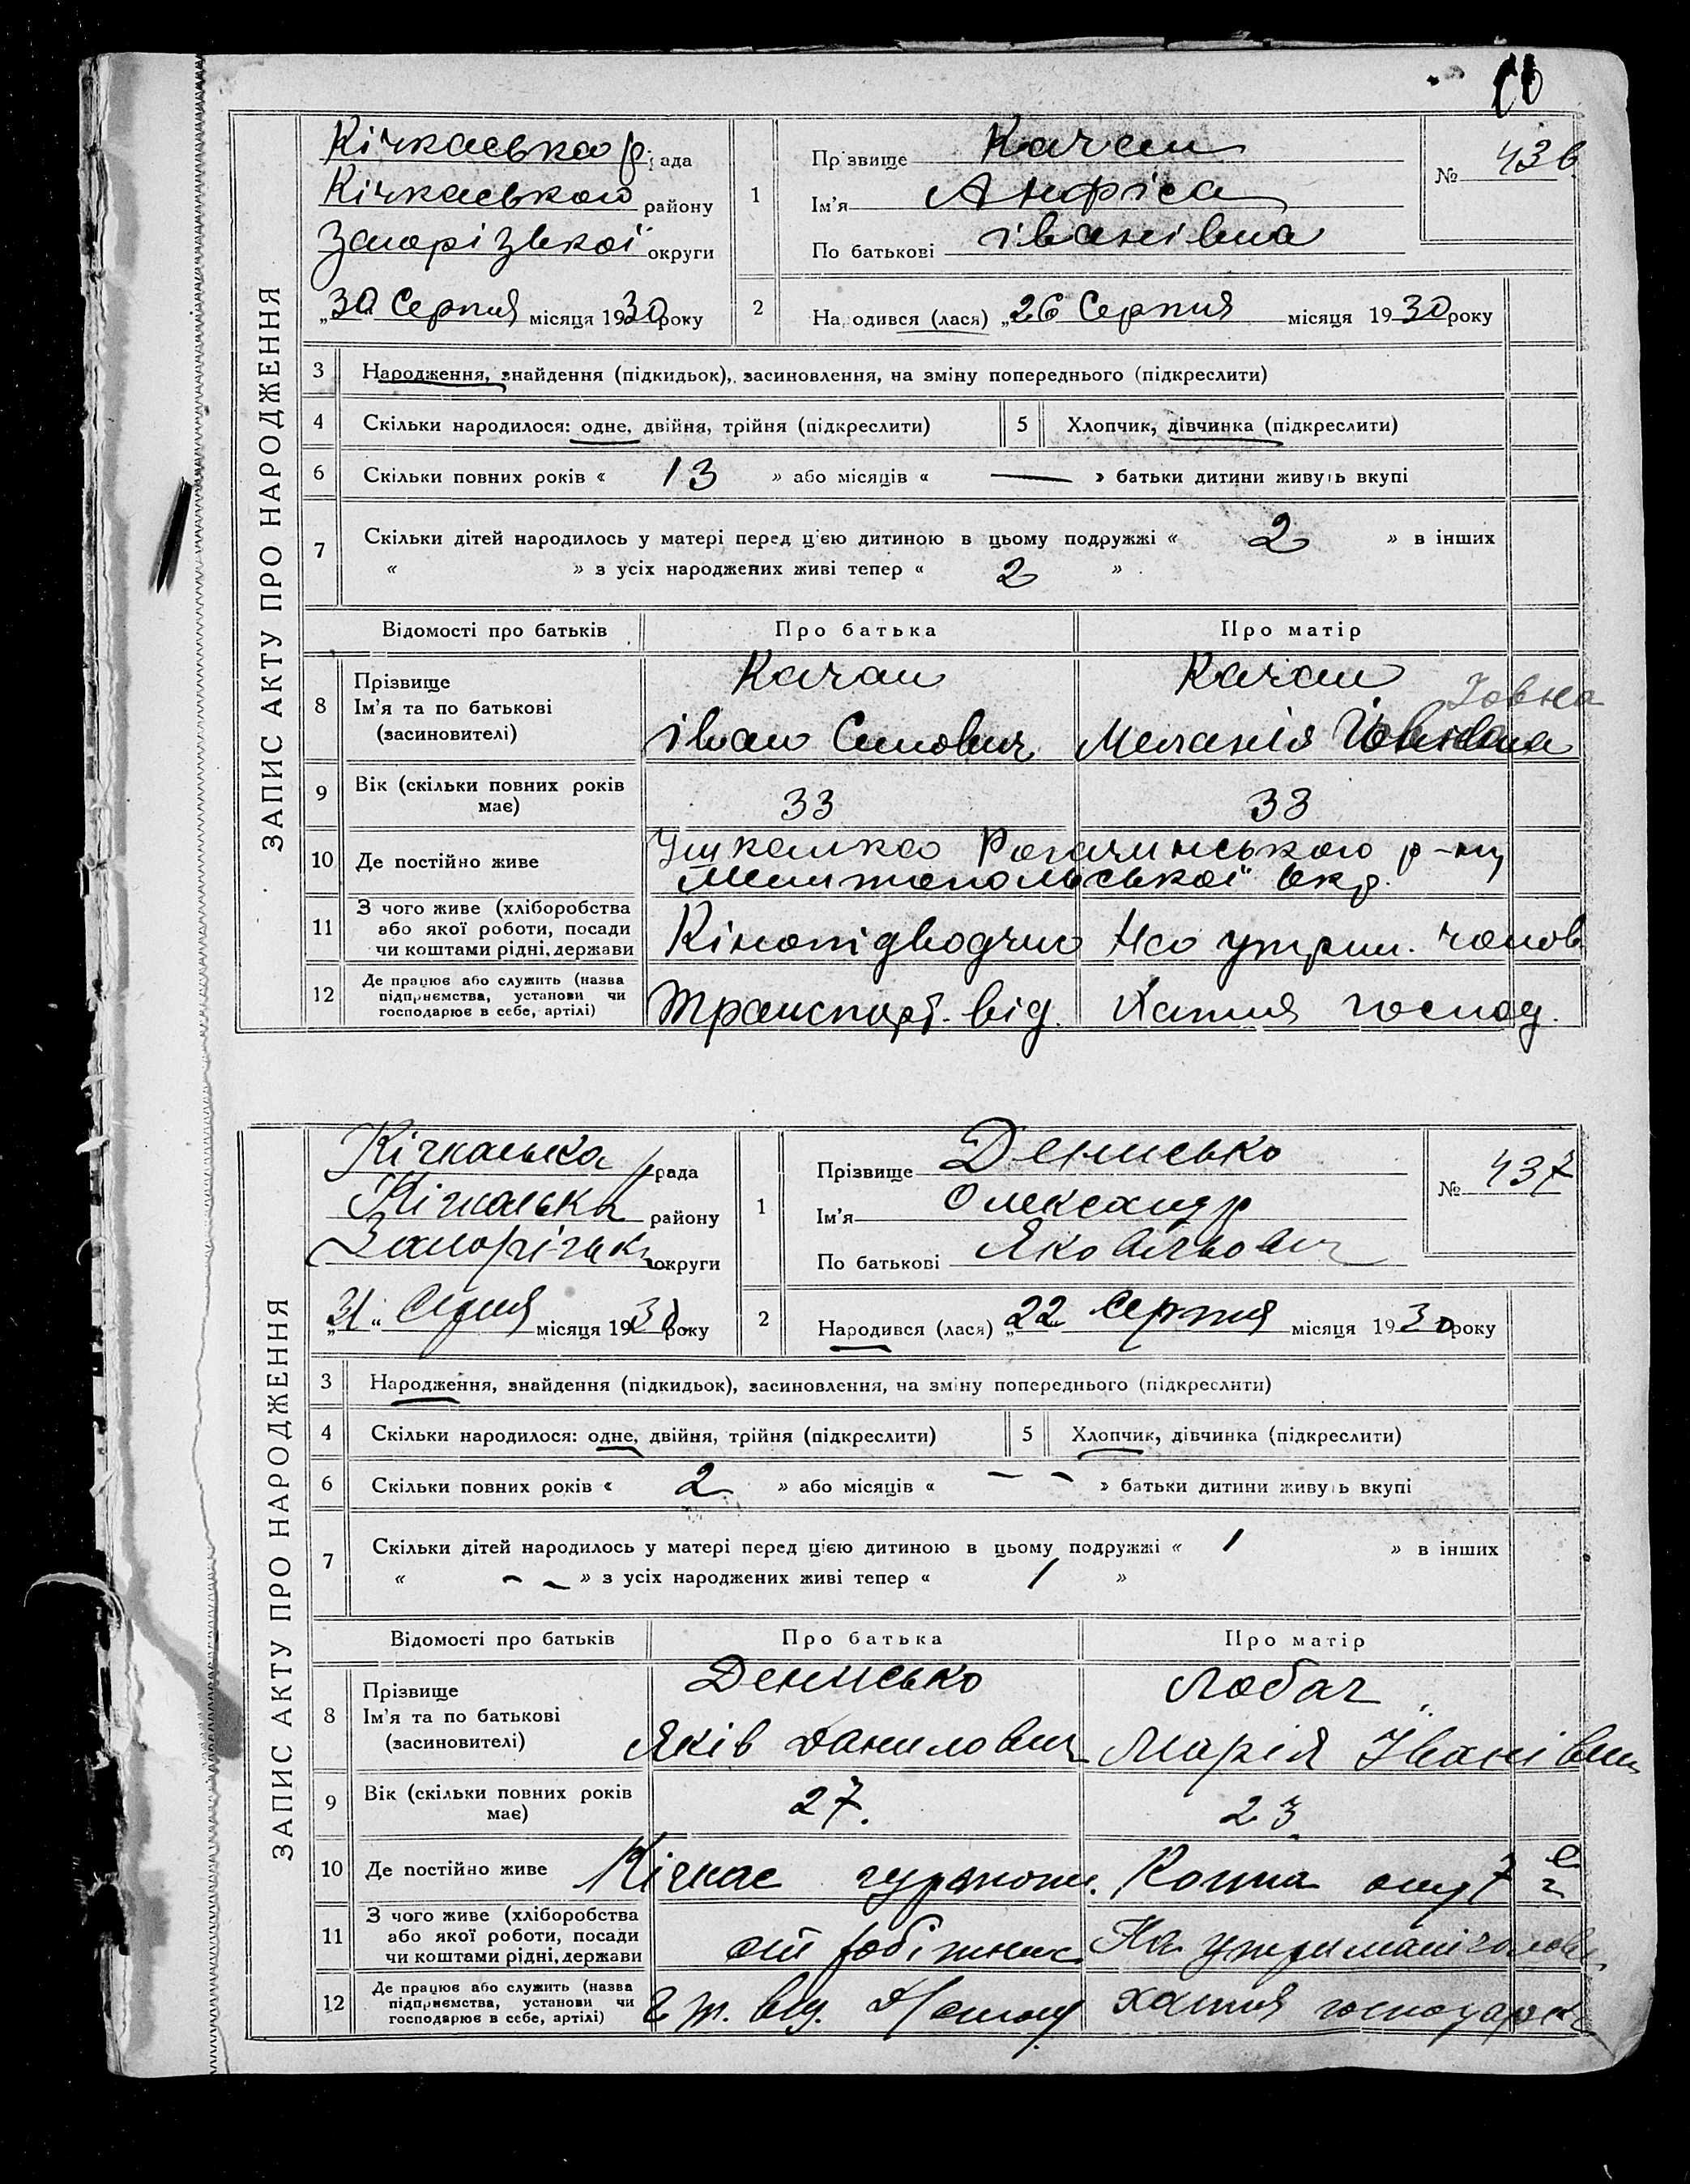 ЗАПИС АКТУ ПРО НАРОДЖЕННЯ
Кічкаська р. рада
Кічкаського району
Запорізької округи
„30 Серпня місяця 1930 року
1
Прізвище Качан
Ім'я Анфіса
По батькові іванівна
№ 436
2
Народився (лася) „26 Серпня місяця 1930 року
3 Народження, знайдення (підкидьок), засиновлення, на зміну попереднього (підкреслити)
4 Скільки народилося: одне, двійня, трійня (підкреслити) 5 Хлопчик, дівчинка (підкреслити)
6 Скільки повних років « 13 » або місяців « — » батьки дитини живуть вкупі
7 Скільки дітей народилось у матері перед цією дитиною в цьому подружжі « 2 » в інших
« » з усіх народжених живі тепер « 2 »
Відомості про батьків Про батька Про матір
8 Прізвище
Ім'я та по батькові
(засиновителі)
Качан
іван
Качан
Меланія
Іовна
9 Вік (скільки повних років має) 33 33
10 Де постійно живе
Ушкалка Рогачинського р-ну
Мелитопольської окр.
11 З чого живе (хліборобства
або якої роботи, посади
чи коштами рідні, держави
На утрим. чолов.
12 Де працює або служить (назва
підприємства, установи чи
господарює в себе, артілі)
Транспорт. від. Хатня господ.
ЗАПИС АКТУ ПРО НАРОДЖЕННЯ
Кічкаська рада
Кічкаськ району
Запорізьк округи
„31" Серпня місяця 1930 року
1
Прізвище Денисько
Ім'я Олександр
По батькові Яковльович
№ 437
2
Народився (лася) „22 Серпня місяця 1930 року
3 Народження, знайдення (підкидьок), засиновлення, на зміну попереднього (підкреслити)
4 Скільки народилося: одне, двійня, трійня (підкреслити) 5 Хлопчик, дівчинка (підкреслити)
6 Скільки повних років « 2 » або місяців « – – » батьки дитини живуть вкупі
7 Скільки дітей народилось у матері перед цією дитиною в цьому подружжі « 1 » в інших
« – – » з усіх народжених живі тепер « 1 »
Відомості про батьків Про батька Про матір
8 Прізвище
Ім'я та по батькові
(засиновителі)
Денисько
Яків Данилович
Лобач
Марія Іванівна
9 Вік (скільки повних років має) 27. 23
10 Де постійно живе
Кічкас гуртож.
11 З чого живе (хліборобства
або якої роботи, посади
чи коштами рідні, держави
робітник На утримані чолов
12 Де працює або служить (назва
підприємства, установи чи
господарює в себе, артілі)
від. хатня господарк